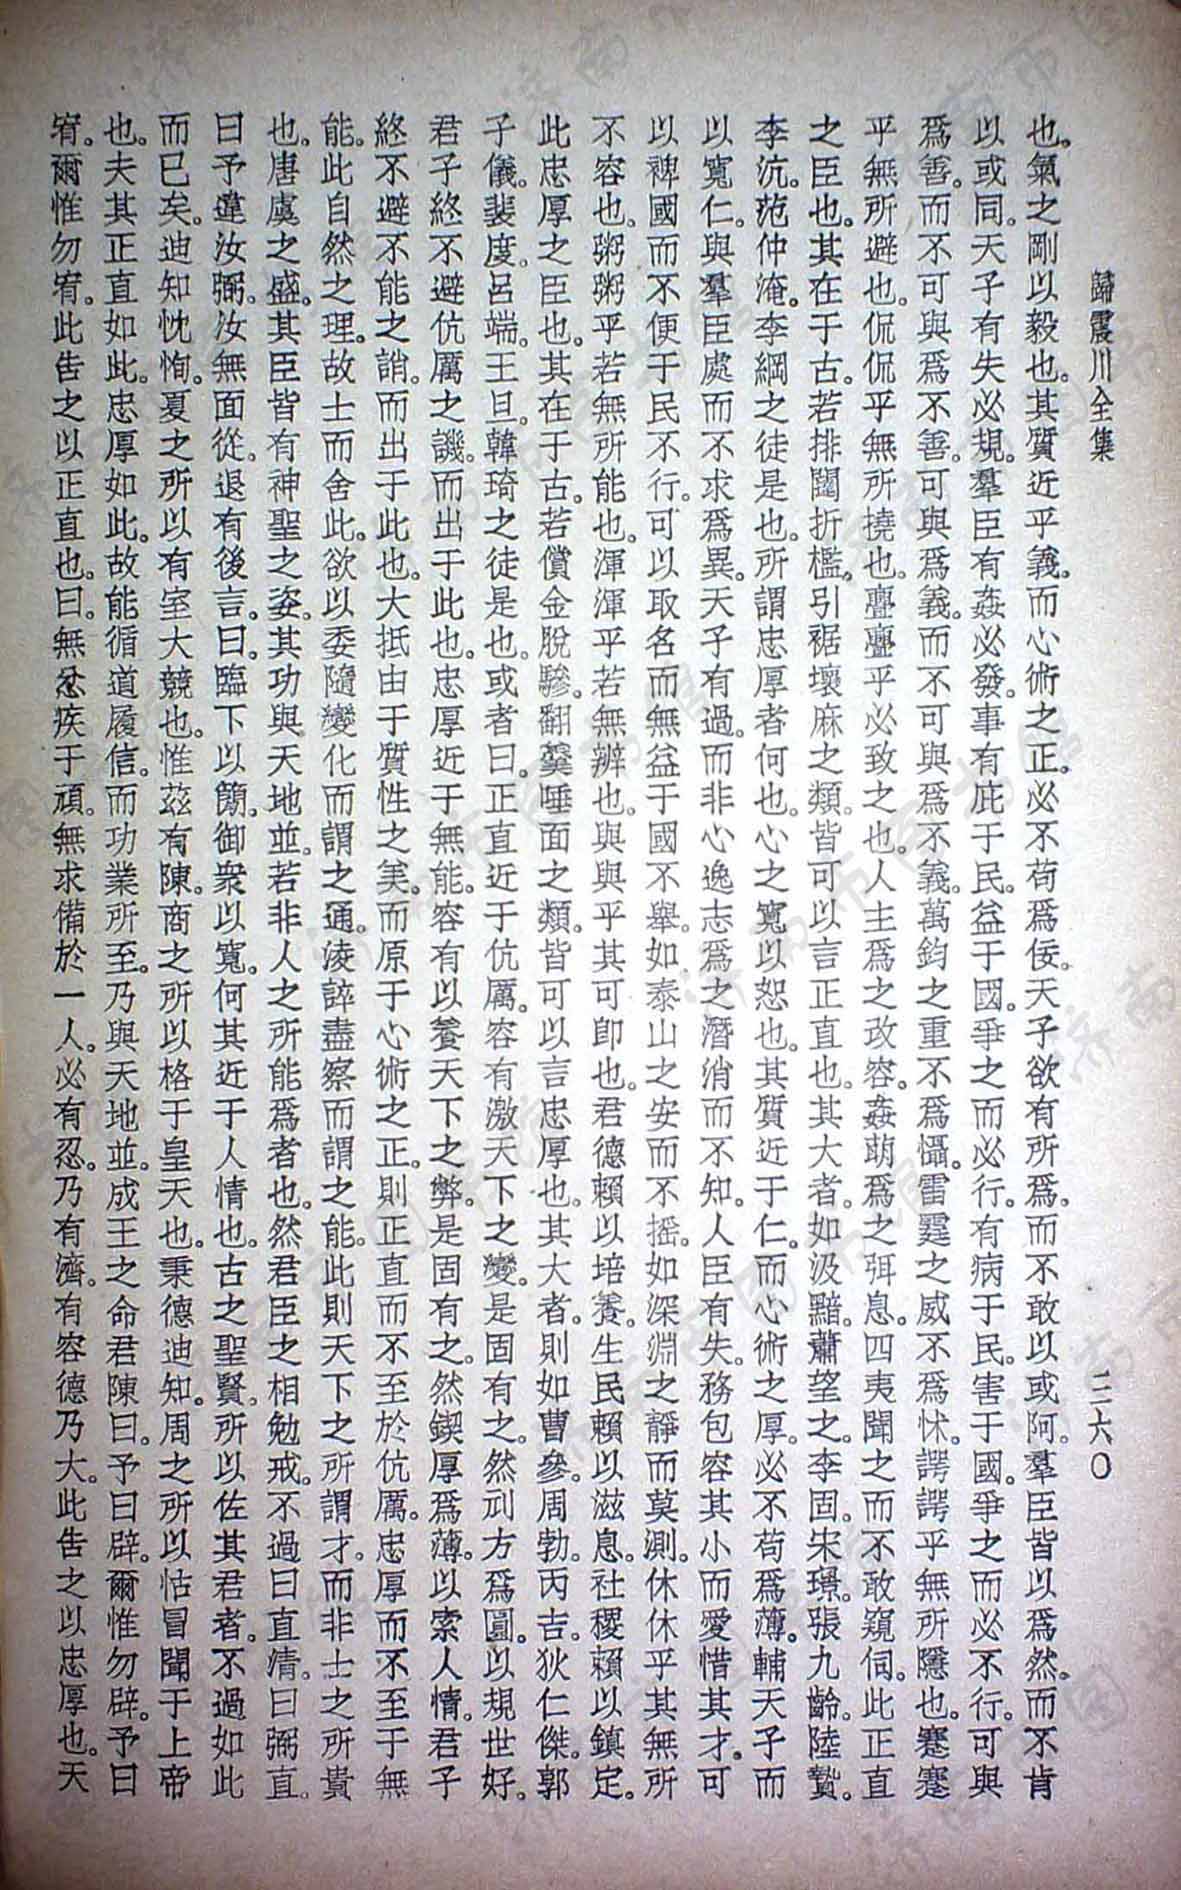 歸震川全集
二六〇
也。氣之剛以毅也。其質近乎義。而心術之正。必不苟爲佞。天子欲有所爲。而不敢以或阿。羣臣皆以爲然。而不肯
以或同。天子有失必規。羣臣有姦必發。事有庇于民。益于國。爭之而必行。有病于民。害于國。爭之而必不行。可與
爲善。而不可與爲不善。可與爲義。而不可與爲不義。萬鈞之重不爲懾。雷霆之威不爲怵。諤諤乎無所隱也。蹇蹇
乎無所避也。侃侃乎無所撓也。亹亹乎必致之也。人主爲之改容。姦萌爲之弭息。四夷聞之而不敢窺伺。此正直
之臣也。其在于古。若排闥折檻。引裾壞麻之類。皆可以言正直也。其大者。如汲黯。蕭望之。李固。宋璟。張九齡。陸贄。
李沆。范仲淹。李綱之徒是也。所謂忠厚者何也。心之寬以恕也。其質近于仁。而心術之厚。必不苟爲薄。輔天子而
以寬仁。與羣臣處而不求爲異。天子有過。而非心逸志爲之潛消而不知。人臣有失。務包容其小而愛惜其才。可
以裨國而不便于民不行。可以取名而無益于國不舉。如泰山之安而不搖。如深淵之靜而莫測。休休乎其無所
不容也。粥粥乎若無所能也。渾渾乎若無辨也。與與乎其可卽也。君德賴以培養。生民賴以滋息。社稷賴以鎭定。
此忠厚之臣也。其在于古。若償金脫驂。翻羹唾面之類。皆可以言忠厚也。其大者。則如曹參。周勃。丙吉。狄仁傑。郭
子儀。裴度。呂端。王旦。韓琦之徒是也。或者曰。正直近于伉厲。容有激天下之變。是固有之。然刓方爲圓。以規世好。
君子終不避伉厲之譏。而出于此也。忠厚近于無能。容有以養天下之弊。是固有之。然鍥厚爲薄。以索人情。君子
終不避不能之誚。而出于此也。大抵由于質性之美。而原于心術之正。則正直而不至於伉厲。忠厚而不至于無
能。此自然之理。故士而舍此。欲以委隨變化而謂之通。淩誶盡察而謂之能。此則天下之所謂才。而非士之所貴
也。唐虞之盛。其臣皆有神聖之姿。其功與天地並。若非人之所能爲者也。然君臣之相勉戒。不過曰直清。曰弼直。
曰予違汝弼。汝無面從。退有後言。曰。臨下以簡。御衆以寬。何其近于人情也。古之聖賢。所以佐其君者。不過如此
而已矣。迪知忱恂。夏之所以有室大競也。惟茲有陳。商之所以格于皇天也。秉德迪知。周之所以怙冒聞于上帝
也。夫其正直如此。忠厚如此。故能循道履信。而功業所至。乃與天地並。成王之命君陳曰。予曰辟。爾惟勿辟。予曰
宥。爾惟勿宥。此告之以正直也。曰。無忿疾于頑。無求備於一人。必有忍。乃有濟。有容德乃大。此告之以忠厚也。天